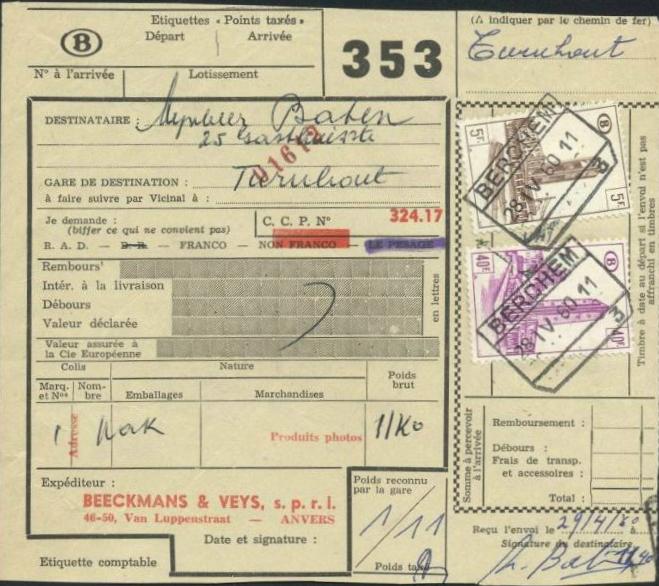 Etiquettes « Points taxés »
Départ Arrivée
B
N° à l'arrivée Lotissement
353
(A indiquer par le chemin de fer)
Turnhout
DESTINATAIRE : Baten
25
01612
GARE DE DESTINATION : Turnhout
à faire suivre par Vicinal à :
Je demande :
(biffer ce qui ne convient pas)
C. C. P. N° 324.17
R. A. D. — D. R. — FRANCO — NON FRANCO — LE PESAGE
Rembours'
Intér. à la livraison
Débours
Valeur déclarée
Valeur assurée à
la Cie Européenne
en lettres
Colis Nature Poids
brut
Marq. et Nos Nom-bre Emballages Marchandises
Adresse
1 Produits photos 1/Ko
Expéditeur :
BEECKMANS & VEYS, s. p. r. l.
46-50, Van Luppenstraat — ANVERS
Date et signature :
Etiquette comptable
Poids reconnu
par la gare
1/11
Poids taxé
5F B 5F
BERCHEM
28 IV. 60 11
B
40F B 40F
BERCHEM
28 IV. 60 11
B
Timbre à date au départ si l'envoi n'est pas
affranchi en timbres
Somme à percevoir
à l'arrivée
Remboursement :
Débours :
Frais de transp.
et accessoires :
Total :
Reçu l'envoi le 29/4/60 à
Signature du destinataire,